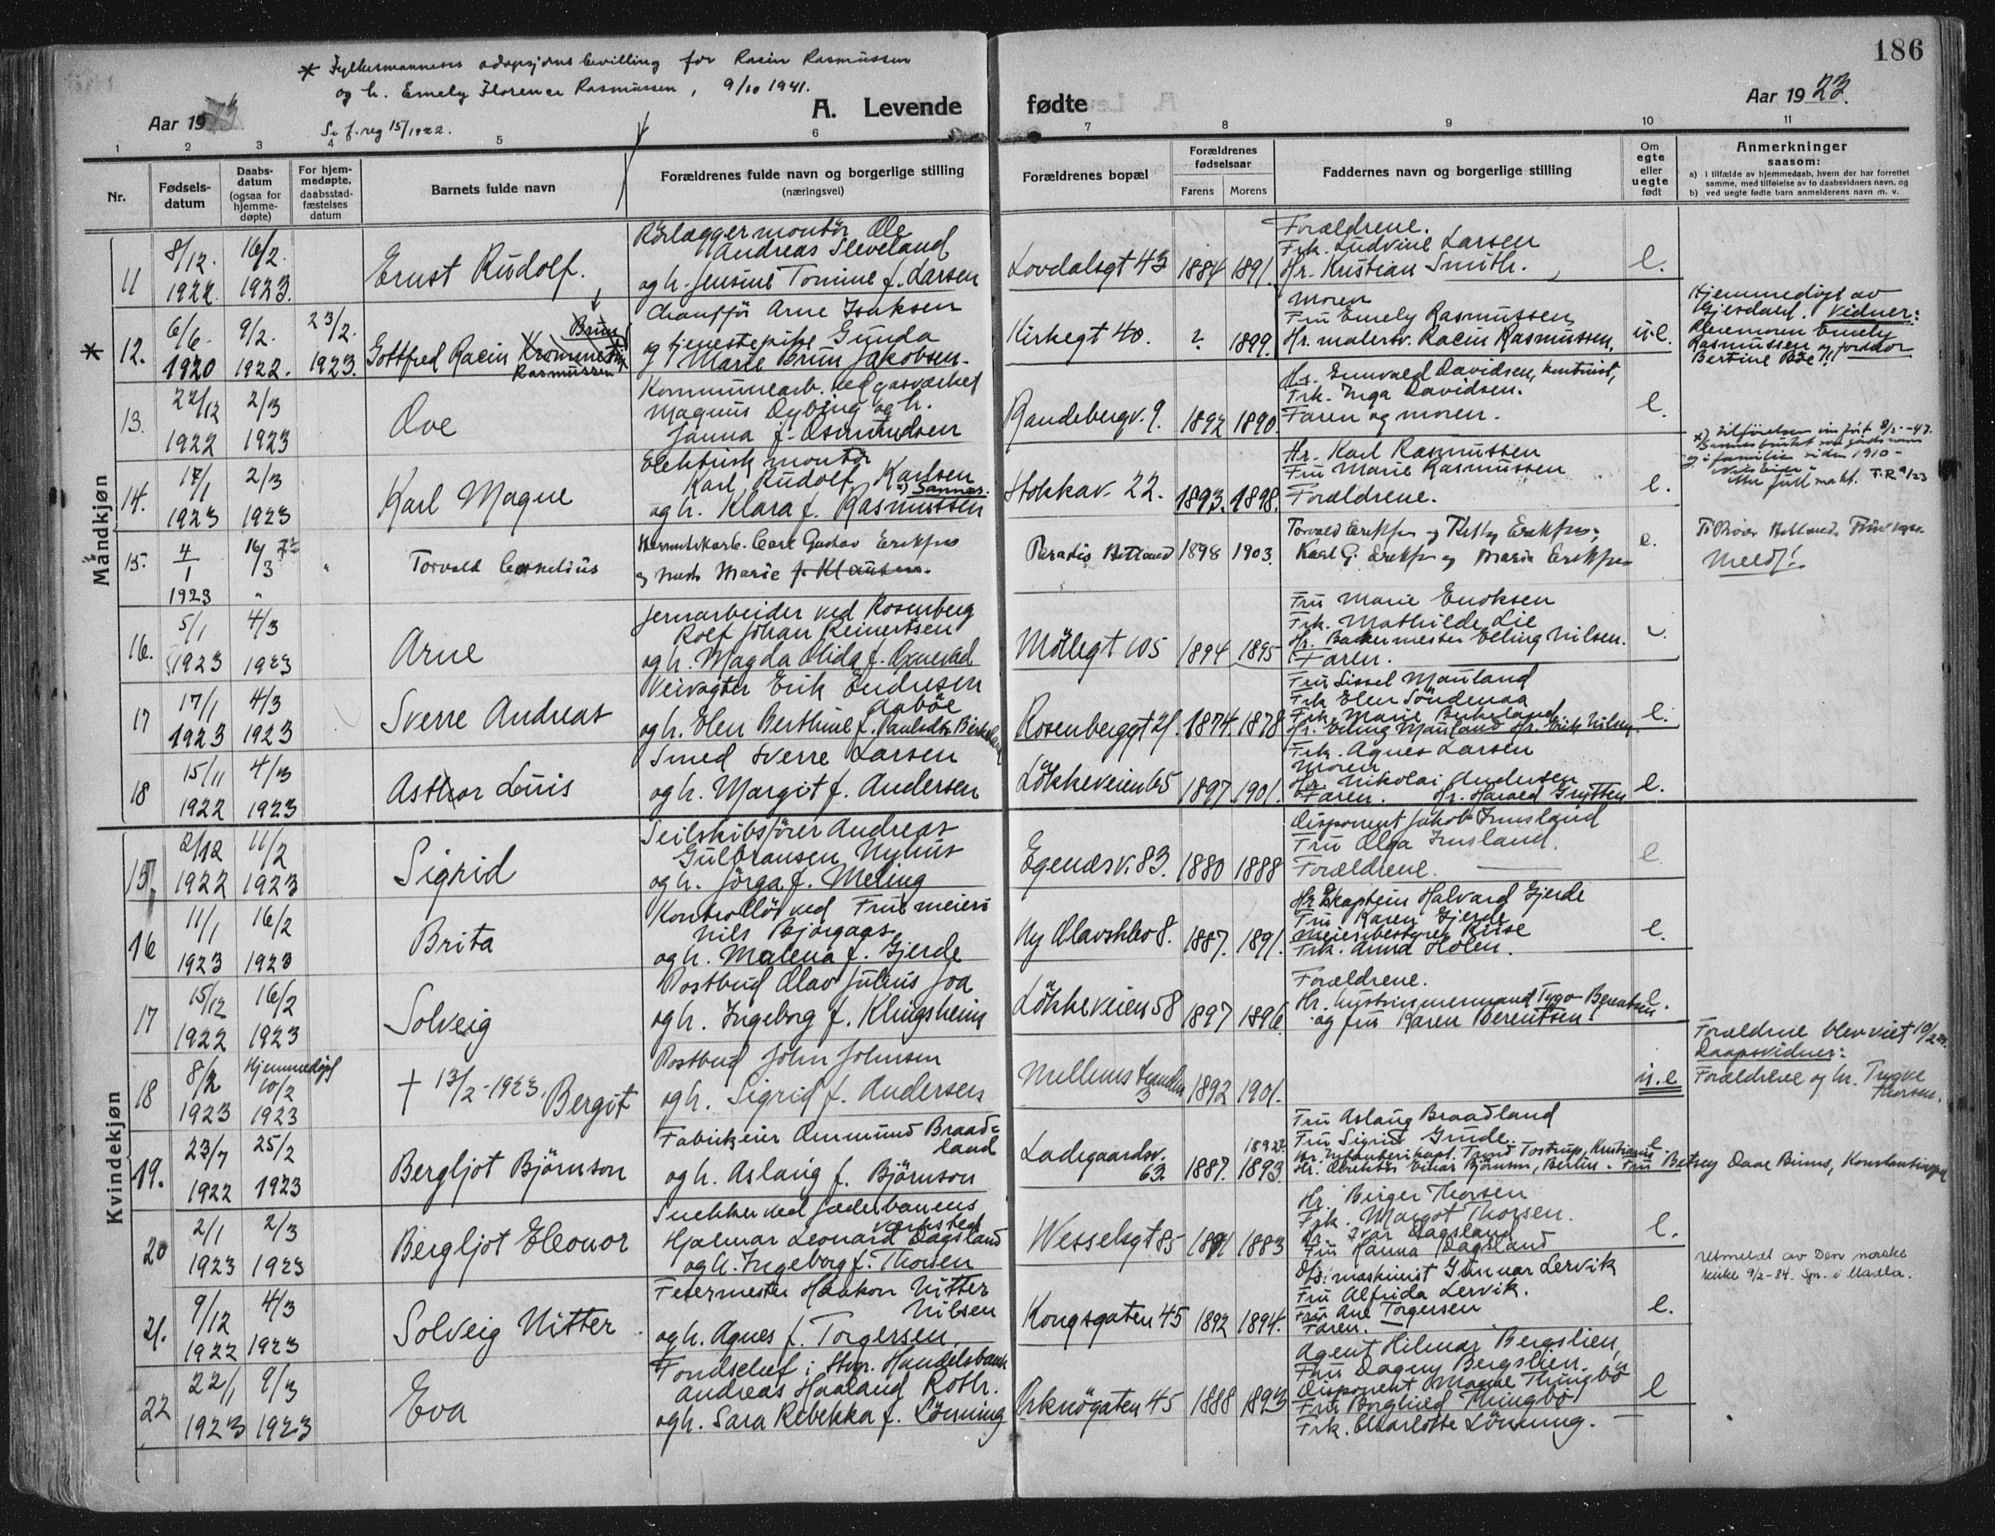 186
* Fylkesmannens adopsjons bevilling for Rasin Rasmussen
og h. Emely Florence Rasmussen, 9/10 1941.
Se f.reg 15/1922.
Aar 19
A. Levende fødte
Aar 1923.
1 2 3 4 5 6 7 8 9 10 11
Nr.
Fødsels-
datum
Daabs-
datum
(ogsaa for
hjemme-
døpte)
For hjem-
medøpte,
daabsstad-
fæstelses
datum
Barnets fulde navn
Forældrenes fulde navn og borgerlige stilling
(næringsvei)
Forældrenes bopæl
Forældrenes
fødselsaar
Farens Morens
Faddernes navn og borgerlige stilling
Om
egte
eller
uegte
født
Anmerkninger
saasom:
a) i tilfælde av hjemmedaab, hvem der har forrettet
samme, med tilføielse av to daabsvidners navn, og
b) ved uegte fødte barn anmelderens navn m. v.
Mandkjøn
11
8/12. 1922.
16/2. 1923.
Ernst Rudolf.
Rørlæggermontør Ole
Andreas Sleveland
og h. Jensine Tomine f. Larsen
Lovdalsgt 43
1884 1891.
Forældrene.
Frk. Ludvine Larsen
Hr. Kristian Smith.
e.
* 12.
6/6. 1920
9/2. 1922.
23/2. 1923.
Gottfred Racin
Brun
Rasmussen
Chauffør Arne Isaksen
og tjenestepike Gunda
Marie Brun Jakobsen.
Kirkegt 40.
? 1899.
Moren
Fru Emely Rasmussen
Hr. malersv. Racin Rasmussen.
u.e.
Hjemmedøpt av
Gjesdahl. Vidner:
Pleiemoren Emely
Rasmussen og fordor
Bertine Bøe.
13.
22/12 1922
2/3 1923
Ove
Kommunearb. ved gasverket
Magnus Dybing og h.
Janna f. Osmundsen
Randebergv. 9.
1892 1890.
Hr. Enevald Davidsen,
Frk. Inga Davidsen.
Faren og moren.
e.
14.
17/1 1923
2/3 1923
Karl Magne
Elektrisk montør
Karl Rudolf Karlsen
x) Sannes.
og h. Klara f. Rasmussen
Stokkav. 22.
1893. 1898.
Hr. Karl Rasmussen
Fru Marie Rasmussen
Forældrene.
e.
15.
4/1 1923
16/3
Torvald Cornelius
Carl Gustav Eriksen
og h. Marie f. Klausen.
Paradis Hetland
1898 1903.
Torvald Eriksen og Eriksen;
Karl G. Eriksen og Maria Eriksen
e.
Meldt!
16.
5/1 1923
4/3 1923
Arne
Jernarbeider ved Rosenberg
Rolf Johan Reinertsen
og h. Magda Alida f. Oxnevad
Møllegt 105
1894 1895
Fru Marie Enoksen
Frk. Mathilde Lie
Hr. Bakermester Elling Nilsen.
Faren.
17
17/1 1923
4/3 1923
Sverre Andreas
Veivogter Erik Endresen
Aabøe
og h. Elen Berthine f. Paulsdtr. Birkeland
Rosenberggt 21.
1874. 1878
Fru Sissel Mauland
Frk Elen Söndenaa
Frk. Marie Birkeland
Hr. Elling Mauland Hr. Erik Nilsen.
e.
18
15/11 1922
4/3 1923
Asthor Luis
Smed Sverre Larsen
og h. Margit f. Andersen
Løkkeveien 65
1897 1901.
Frk. Agnes Larsen
Moren
Hr. Nikolai Andersen
Faren. Hr. Harald Grytten
e.
Kvindekjøn
15.
2/12 1922
11/2 1923
Sigrid
Seilskibsfører Andreas
Gulbransen Nyhus
og h. Jörga f. Meling
Egenæsv. 83.
1880 1888
Disponent Jakob Imsland
Fru Olga Imsland.
Forældrene.
e
16
11/1 1923
16/2 1923
Brita
Kontrollør ved Frue meieri
Nils Bjørgaas
og h. Malena f. Gjerde
Ny Olavskleo 8.
1887. 1891.
Hr. Skaptein Halvard Gjerde
Fru Karen Gjerde
Meieribestyrer Riise
Frk. Anna Holen.
e.
17
15/12 1922
16/2 1923
Solveig
Postbud Olav Julius Joa
og h. Ingeborg f. Klingsheim
Løkkeveien 58
1897 1896.
Forældrene.
Hr. hustømmermand Tygo Berentsen
og fru Karen Berentsen.
e.
18
8/2 1923
Hjemmedøpt
10/2 1923
+ 13/2-1923. Bergit
Postbud John Johnsen
og h. Sigrid f. Andersen
Mellemstranden
3
1892 1901.
u.e
Forældrene blev viet 10/2
Daapsvidner:
Forældrene og hr. Trygve
Thorsen.
19.
23/7 1922
25/2 1923
Bergljot Björnson
Fabrikeier Ommund Braad=
land
og h. Aslaug f. Björnson
Ladegaardsv.
63.
1887. 1893.
Fru Aslaug Braadland
Fru Sigrid Grude.
Hr. Infanterikapt. Trond Tostrup, Kristiania
Hr. direktør Einar Björnson, Berlin. Fru Betsey Daae Binns, Konstantinopel
20
2/1 1923
2/3 1923
Bergljot Eleonor
Snekker ved Jæderbanens
verksted
Hjalmar Leonard Dagsland
og h. Ingeborg f. Thorsen
Wesselsgt 85
1891 1883
Hr. Birger Thorsen
Frk. Margot Thorsen.
Hr. Ivar Dagsland
Fru Hanna Dagsland
e.
Utmeldt av Den norske
kirke 9/2-84. Spr. i Madla.
21.
9/12 1922
4/3 1923
Solveig Nitter
Feiermester Haakon Nitter
Nilsen
og h. Agnes f. Torgersen.
Kongsgaten 45
1892 1894.
Hr. maskinist Gunnar Lervik
Fru Alfrida Lervik.
Fru Ane Torgersen
Faren.
e.
22
22/1 1923
9/3 1923
Eva
Fondschef i Stvgr. Handelsbank
Andreas Haaland Roth.
og h. Sara Rebekka f. Lönning
Orknögaten 45
1888 1893
Agent Hilmar Bergslien,
Fru Dagny Bergslien.
Disponent Magne Thingbö
Fru Borghild Thingbö
Frk. Charlotte Lönning.
e